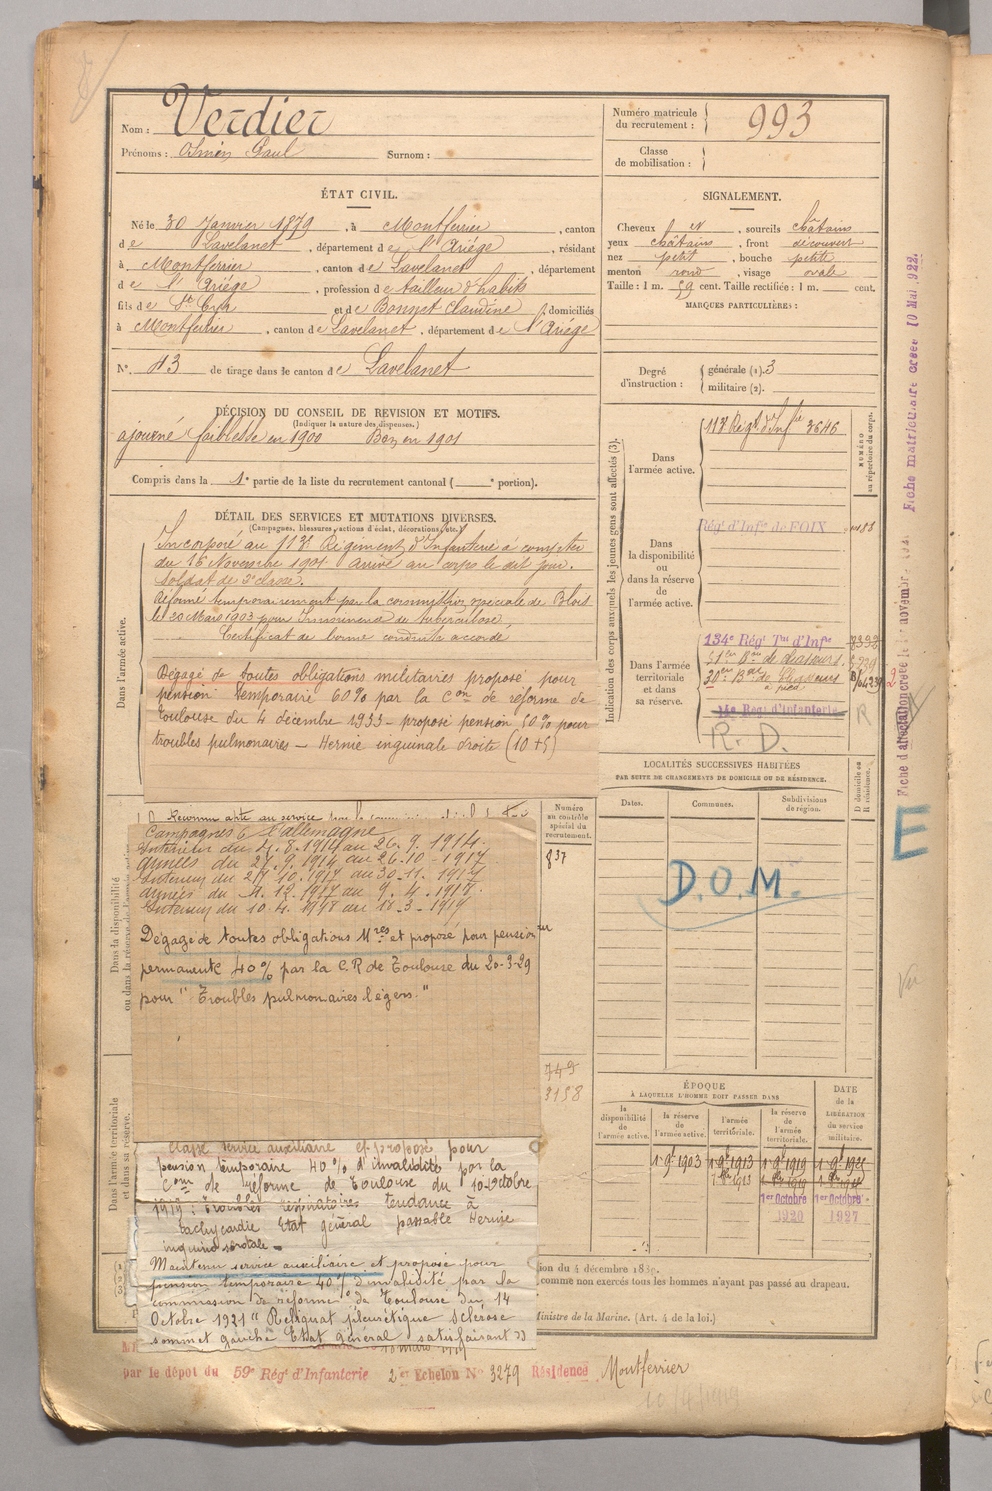 Nom : Verdier
Prénoms : Paul Surnom :
Numéro matricule du recrutement : 993
Classe de mobilisation :
ÉTAT CIVIL.
Né le 30 Janvier 1879, à Montferrier, canton
de Lavelanet, département de l'Ariége, résidant
à Montferrier, canton de Lavelanet, département
de l'Ariége, profession de tailleur d'habits
fils de St Cyr et de Bonnet Claudine, domiciliés
à Montferrier, canton de Lavelanet, département de l'Ariége
N° 43 de tirage dans le canton de Lavelanet
SIGNALEMENT.
Cheveux N, sourcils châtains
yeux châtains, front découvert
nez petit, bouche petite
menton rond, visage ovale
Taille : 1 m. 59 cent. Taille rectifiée : 1 m. cent.
MARQUES PARTICULIÈRES :
Degré d'instruction : générale (1). 3
militaire (2).
DÉCISION DU CONSEIL DE REVISION ET MOTIFS.
(Indiquer la nature des dispenses.)
ajourné faiblesse en 1900 Bon en 1901
Compris dans la 1e partie de la liste du recrutement cantonal ( e portion).
DÉTAIL DES SERVICES ET MUTATIONS DIVERSES.
(Campagnes, blessures, actions d'éclat, décorations, etc.)
Dans l'armée active.
Incorporé au 113e Régiment d'Infanterie à compter
du 16 Novembre 1901. Arrivé au corps le dit jour.
Soldat de 2e classe.
Réformé temporairement par la commission spéciale de Blois
le 20 Mars 1903 pour Imminence de tuberculose
Certificat de bonne conduite accordé
Dégagé de toutes obligations militaires proposé pour
pension temporaire 60% par la Con de réforme de
Toulouse du 4 décembre 1933 - proposé pension 50% pour
troubles pulmonaires - Hernie inguinale droite (10+5)
Dans la disponibilité ou dans la réserve de l'armée active
Reconnu apte au service
Campagnes c/ l'allemagne
Intérieur du 4.8.1914 au 26.9.1914.
armées du 27.9.1914 au 26.10-1917.
Intérieur du 27.10.1917 au 30.11.1917
armées du 1.12.1917 au 9.4.1918.
Intérieur du 10.4.1918 au 11.3-1919
Dégagé de toutes obligations Mres et proposé pour pension
permanente 40% par la C.R de Toulouse du 20-3-29
pour "Troubles pulmonaires légers."
Dans l'armée territoriale et dans sa réserve.
Classé service auxiliaire et proposé pour
pension temporaire 40% d'invalidité par la
Com de réforme de Toulouse du 10 octobre
1919 : Troubles respiratoires tendance à
tachycardie Etat général passable Hernie
inguino scrotale.
Maintenu service auxiliaire et proposé pour
pension temporaire 40% d'invalidité par la
commission de réforme de Toulouse du 14
Octobre 1921 "Reliquat pleurétique Sclérose
sommet gauche Etat général satisfaisant
Numéro au contrôle spécial du recrutement.
837
749
3158
Indication des corps auxquels les jeunes gens sont affectés (3).
NUMÉRO au répertoire du corps.
Dans l'armée active.
113e Régt d'Infie 3646
Dans la disponibilité ou dans la réserve de l'armée active.
Régt d'Infie de FOIX
Dans l'armée territoriale et dans sa réserve.
134e Régt Tal d'Infie
de chasseurs
à pied
Régt d'Infanterie
R. D.
R
LOCALITÉS SUCCESSIVES HABITÉES
PAR SUITE DE CHANGEMENTS DE DOMICILE OU DE RÉSIDENCE.
Dates. Communes. Subdivisions de région.
D domicile ou R résidence.
D.O.M.
E
Vu
Fiche matriculaire créée 10 Mai 1922.
ÉPOQUE
À LAQUELLE L'HOMME DOIT PASSER DANS
la disponibilité de l'armée active.
la réserve de l'armée active.
l'armée territoriale.
la réserve de l'armée territoriale.
DATE de la LIBÉRATION du service militaire.
1 9bre 1903 1 9bre 1913 1 9bre 1919
1er Octobre 1920
1er Octobre 1927
comme non exercés tous les hommes n'ayant pas passé au drapeau.
Ministre de la Marine. (Art. 4 de la loi.)
par le dépôt du 59e Régt d'Infanterie 2 Echelon N° 3279 Résidence Montferrier